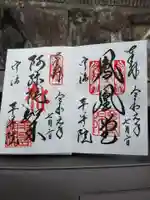 奉拝
令和元年
七月
鳳凰堂
宇治
平等院
奉拝
令和元年
七月
阿弥陀如来
宇治
平等院